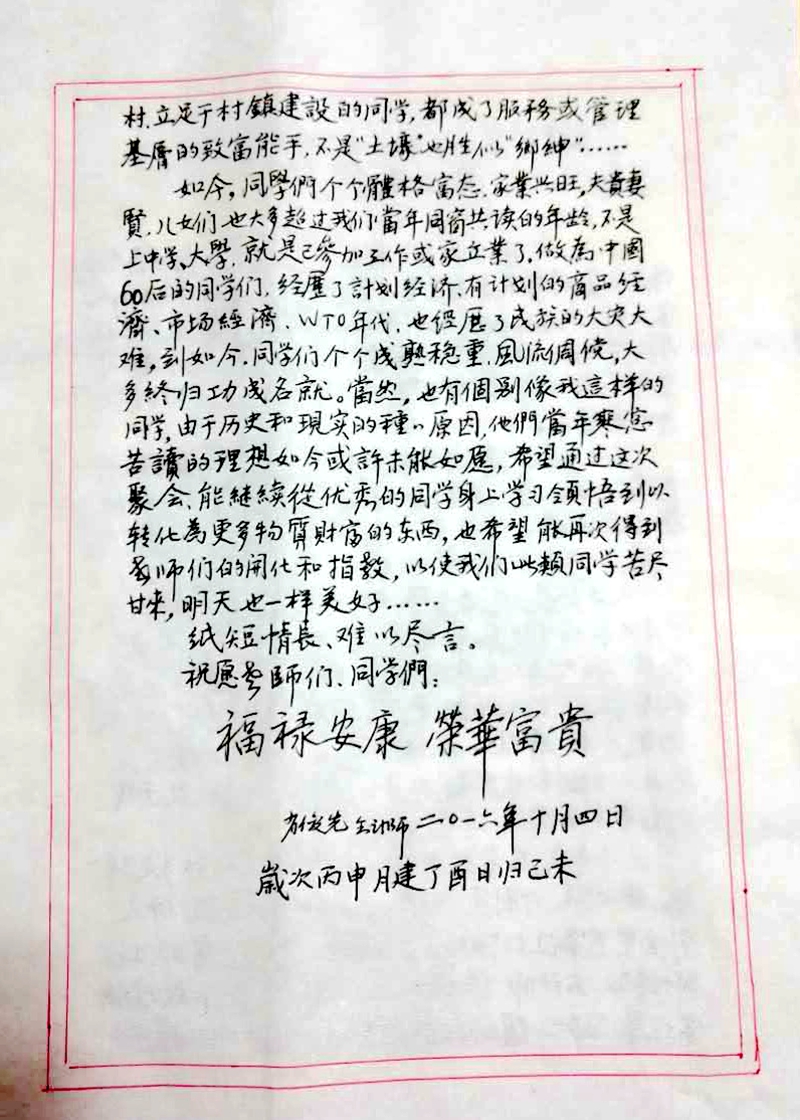 村.立足于村鎮建設的同学,都成了服务或管理
基層的致富能手,不是"土壕"也胜似"鄉紳"……
如今,同學們个个體格富态.家業兴旺,夫貴妻
賢.儿女们也大多超过我们當年同窗共读的年龄,不是
上中学、大學.就是已參加工作或家立業了.做為中國
60后的同学们.经歷了計划经济、有计划的商品经
濟、市场經濟.WTO年代.也經歷了民族的大灾大
难,到如今.同学们个个成熟稳重.風流倜傥,大
多終归功成名就。當然,也有個别像我這样的
同学,由于历史和現实的種〃原因,他們當年寒窓
苦讀的理想如今或許未能如愿,希望通过这次
聚会、能継続從优秀的同学身上学习領悟到以
转化為更多物質財富的东西,也希望能再次得到
老师们的開化和指教,以使我们此類同学苦尽
甘来,明天也一样美好……
纸短情長、难以尽言。
祝愿老師们、同学們:
福禄安康 榮華富貴
先 二〇一六年十月四日
歲次丙申月建丁酉日归己未